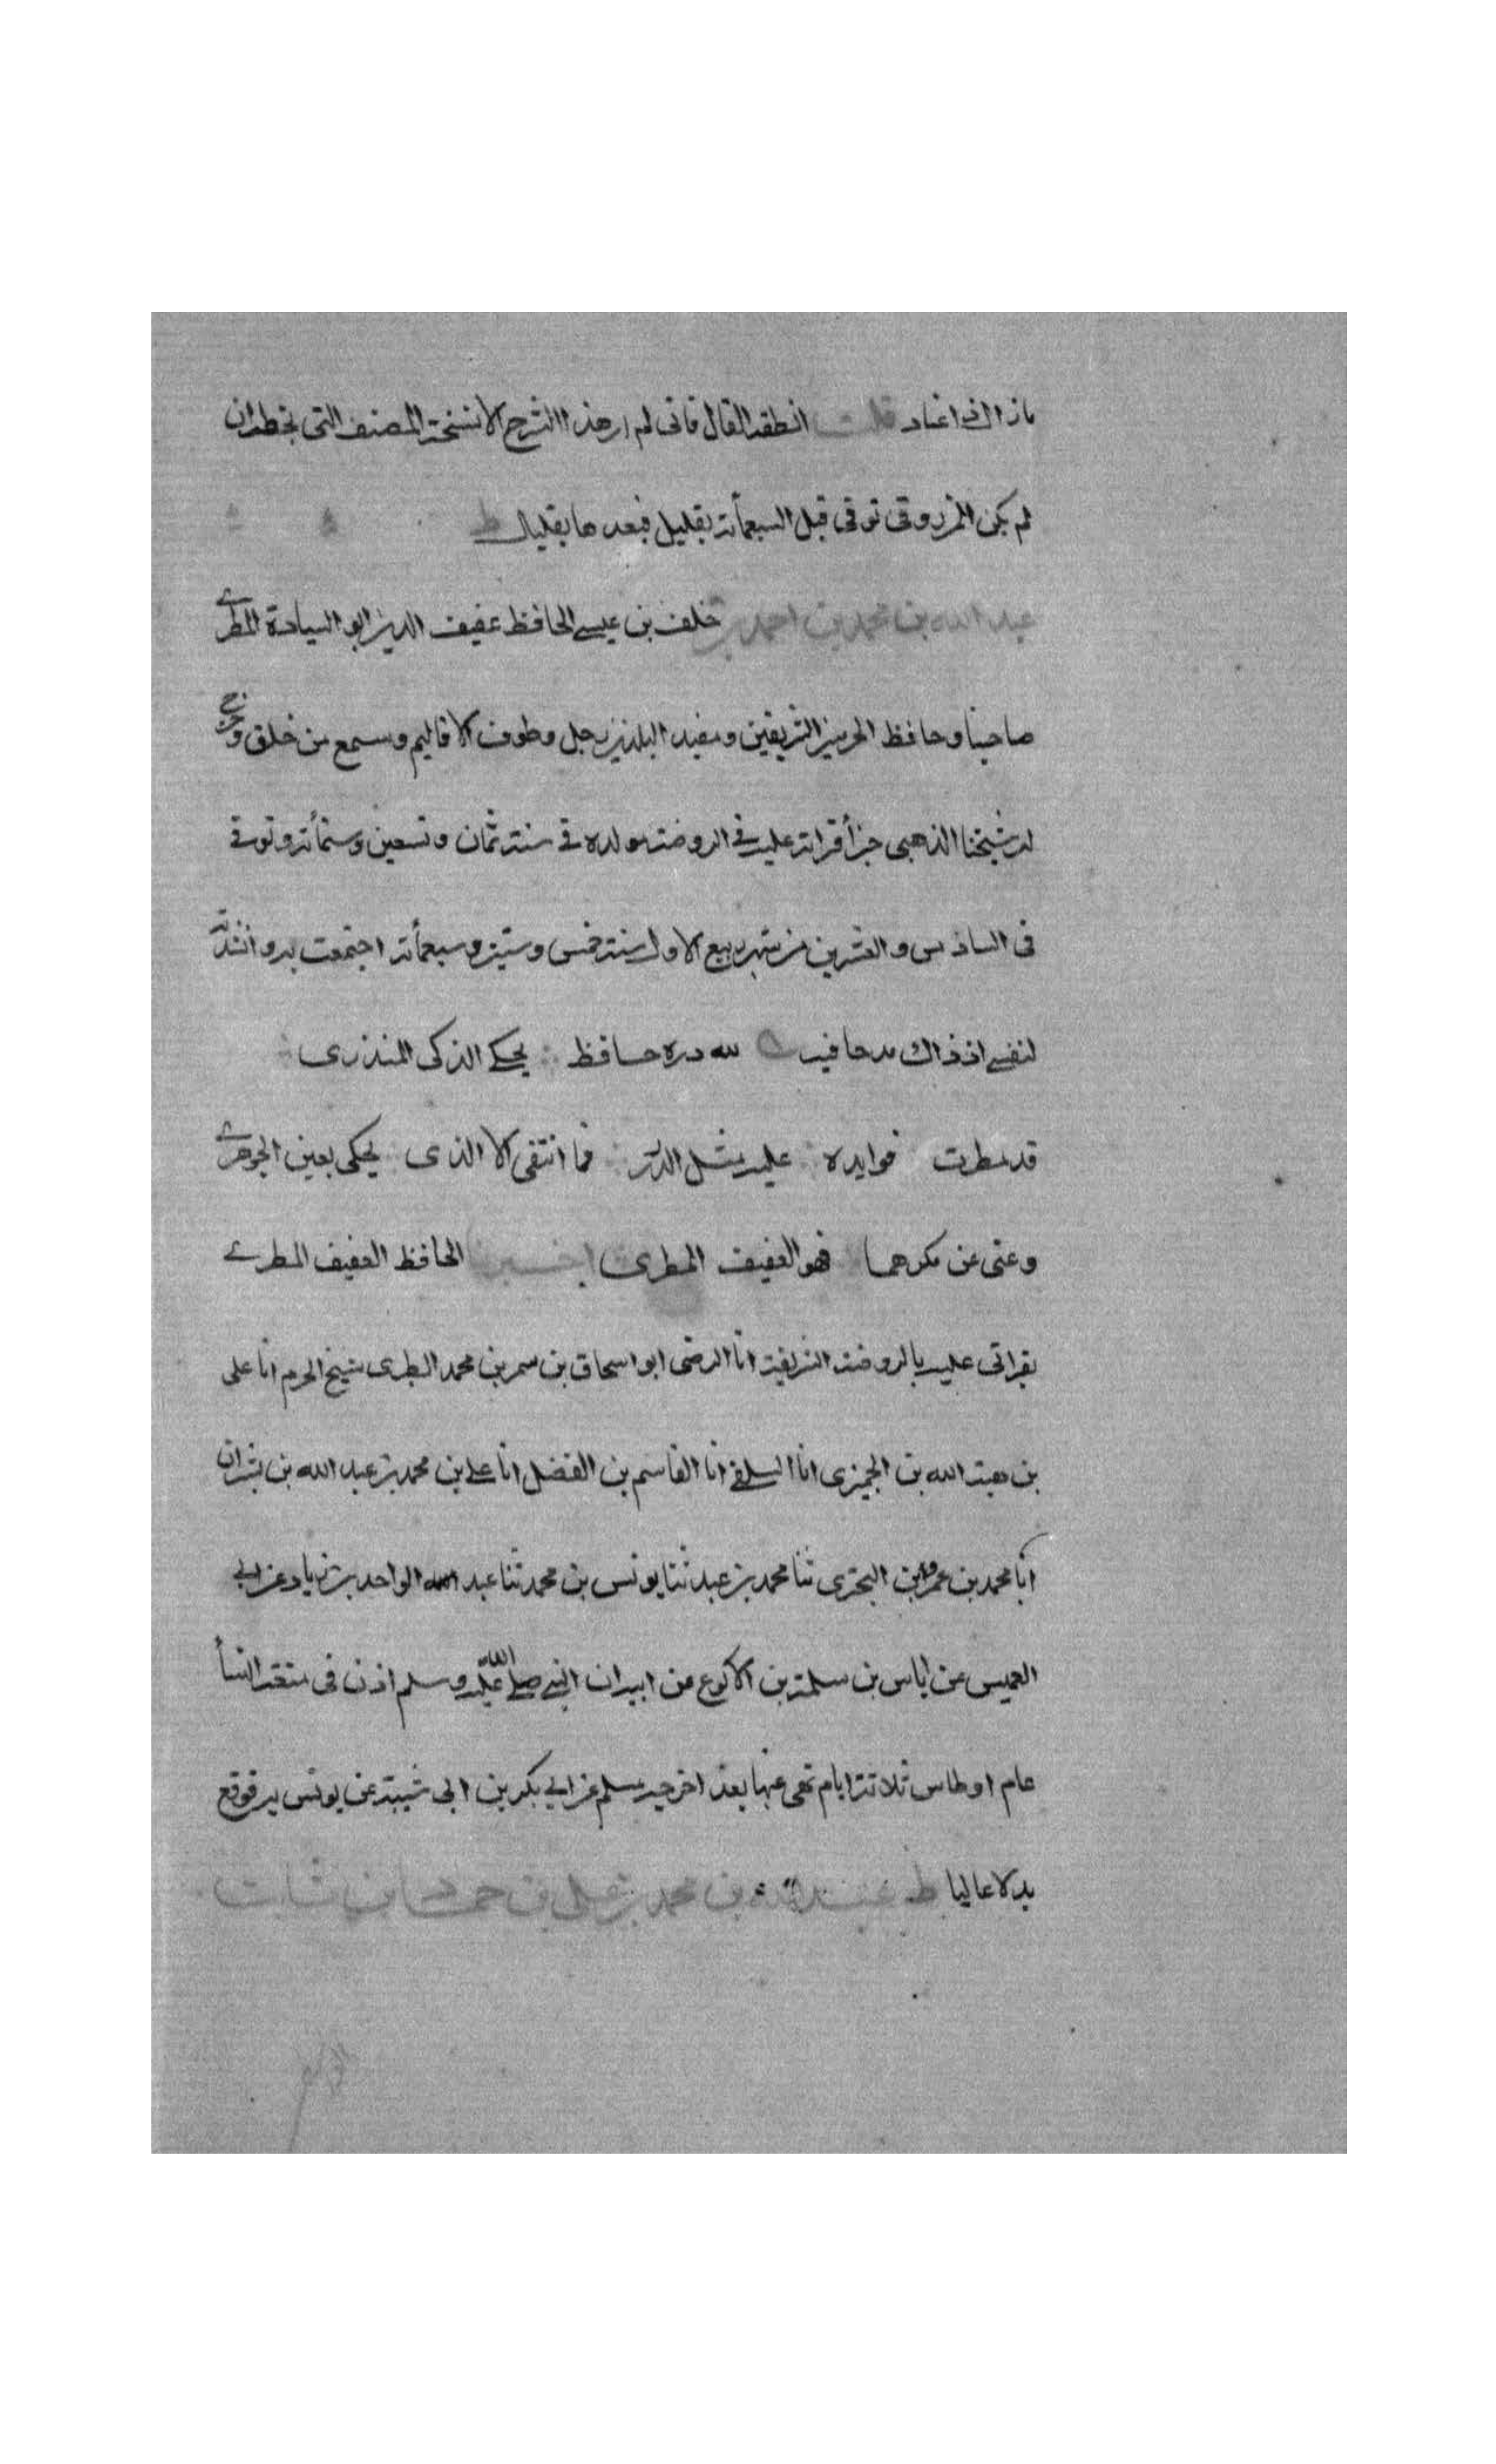 ماذا الذى افاد قلت انطقه القال فانى لم ار هذا الشرح الا نسخة المصنف التى بخطه ان
لم يكن المرزوقى توفى قبل السبعمأته بقليل فبعدها بقليل ط
عبد الله بن محمد بن احمد بن خلف بن عيسى الحافظ عفيف الدين ابو السيادة المطرى
صاحبنا وحافظ الحرمين الشريفين ومفيد البلدين رحل وطوف الاقاليم وسمع من خلق وخرج
له شيخنا الذهبى جزأ قراته عليه فى الروضة مولده فى سنة ثمان وتسعين وستمأته وتوفى
فى السادس والعشرين من شهر ربيع الاول سنة خمس وستين وسبعمأته اجتمعت به وانشدته
لنفسى اذ ذاك مدحا فيه لله دره حافظ يحكى الذكى المنذرى
قد مطرت فوايده عليه مثل الدرر فما انتقى الا الذى يحكى بعين الجوهرى
وعنى عن مكرهما فهو العفيف المطرى اخبرنا الحافظ العفيف المطرى
بقراتى عليه بالروضة الشريفة انا الرضى ابو اسحاق بن سمر بن محمد الطبرى شيخ الحرم انا على
بن هبة الله بن الجميزى انا السلفى انا القاسم بن الفضل انا على بن محمد بن عبد الله بن بشران
انا محمد بن عمرو بن البخترى ثنا محمد بن عبد ثنا يونس بن محمد ثنا عبد الواحد بن زياد عن ابى
العميس عن اياس بن سلمة بن الاكوع عن ابيه ان النبى صلى الله عليه وسلم اذن فى متعة النسأ
عام اوطاس ثلاثة ايام نهى عنها بعد اخرجه مسلم عن ابى بكر بن ابى شيبة عن يونس به فوقع
بدلا عاليا ط عبد الله بن محمد بن على بن حماد بن ثابت